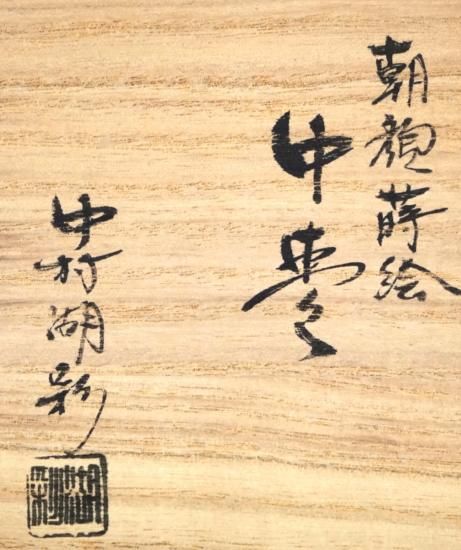 朝顔蒔絵
中棗
中村湖彩
湖彩